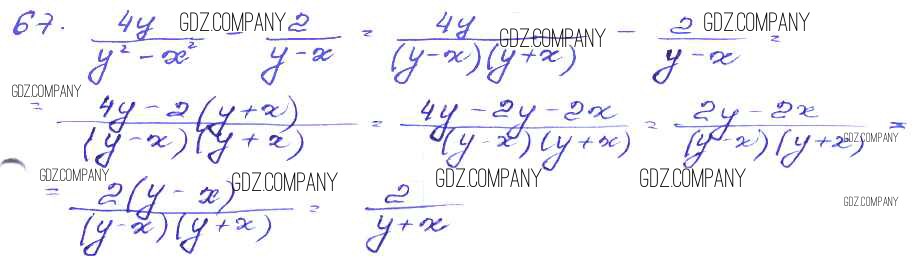 67. 4y / (y² - x²) - 2 / (y - x) = 4y / ((y-x)(y+x)) - 2 / (y - x) =
= (4y - 2(y+x)) / ((y-x)(y+x)) = (4y - 2y - 2x) / ((y-x)(y+x)) = (2y - 2x) / ((y-x)(y+x)) =
= 2(y - x) / ((y-x)(y+x)) = 2 / (y+x)
GDZ.COMPANY GDZ.COMPANY GDZ.COMPANY
GDZ.COMPANY
GDZ.COMPANY
GDZ.COMPANY GDZ.COMPANY GDZ.COMPANY GDZ.COMPANY
GDZ.COMPANY